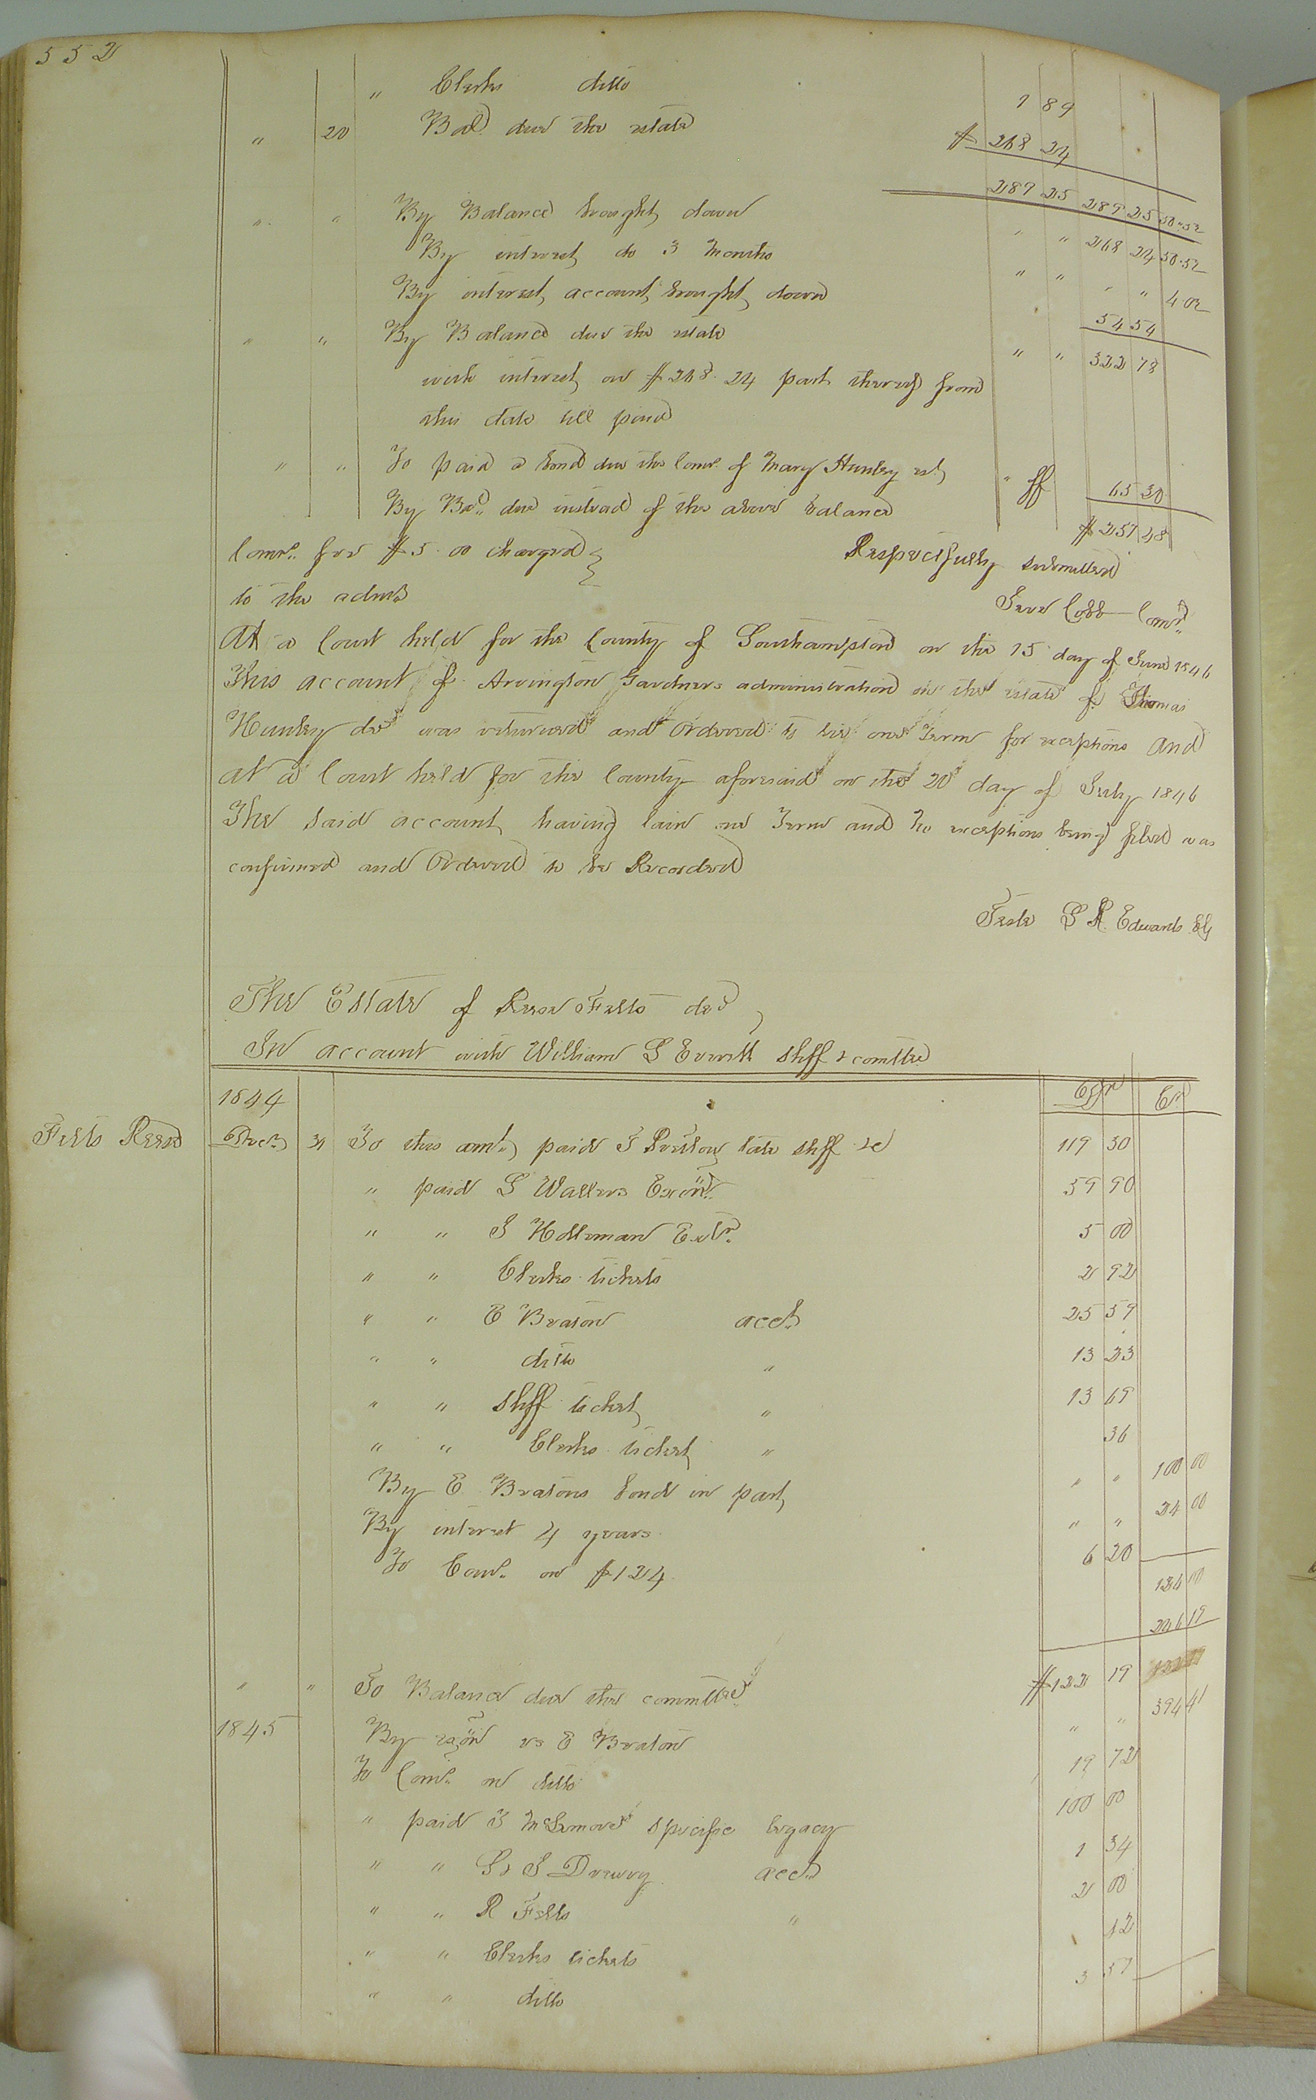 552
" Clerks ditto 1 89
" 20 Bal. due the estate $ 268 24
289 25 289 25 50.52
" " By Balance brought down " " 268 24 50.52
By interest do 3 Months " " " " 4.02
By interest account brought down 54 54
" " By Balance due the estate " " 322 78
with interest on $268.24 part thereof from
this date till paid
" " To paid a bond due the Comr. of Mary Hunley est. " 65 30
By Bal. due instead of the above balance $257 48
Comr. fee $5.00 charged
to the admr
Respectfully submitted
Cobb Comr.
At a Court held for the County of Southampton on the 15 day of June 1846
This account of Arrington Gardners administration on the estate of Thomas
Hunley decd was returned and Ordered to lie one Term for exceptions and
at a Court held for the County aforesaid on the 20 day of July 1846
The said account having lain one Term and no exceptions being filed was
confirmed and Ordered to be Recorded
Teste L R Edwards Clk
The Estate of Reese Felts decd
In account with William L Everitt Shff & comttee
1844 Dr Cr
Felts Reese Decr. 31 To this amt. paid late shff &c 119 30
" paid L Wallers Exon. 59 90
" " S Holleman Extr. 5 00
" " Clerks tickets 2 92
" " E Beaton acct. 25 59
" " ditto " 13 23
" " Shff ticket " 13 69
" " Clerks ticket " 36
By E Beatons bond in part " " 100 00
By interest 4 years " " 24 00
To Com. on $124 6 20
124 00
246 19
" " To Balance due the committee $122 19
1845 By exon vs E Beaton " " 394 41
To Com. on ditto 19 72
" paid specific legacy 100 00
" " Drewry acct. 1 34
" " R Felts " 2 00
" " Clerks tickets 12
" " ditto 3 57